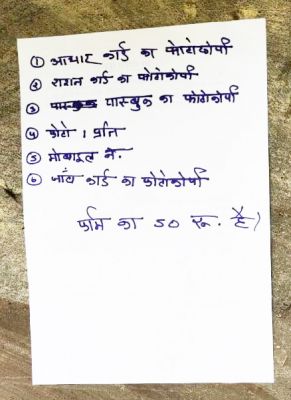 ① आधार कार्ड का फोटोकोपी
② राशन कार्ड का फोटोकोपी
③ पासबुक का फोटोकोपी
④ फोटो 1 प्रति
⑤ मोबाइल नं.
⑥ जॉब कार्ड का फोटोकोपी
फॉर्म का 50 रू. है।